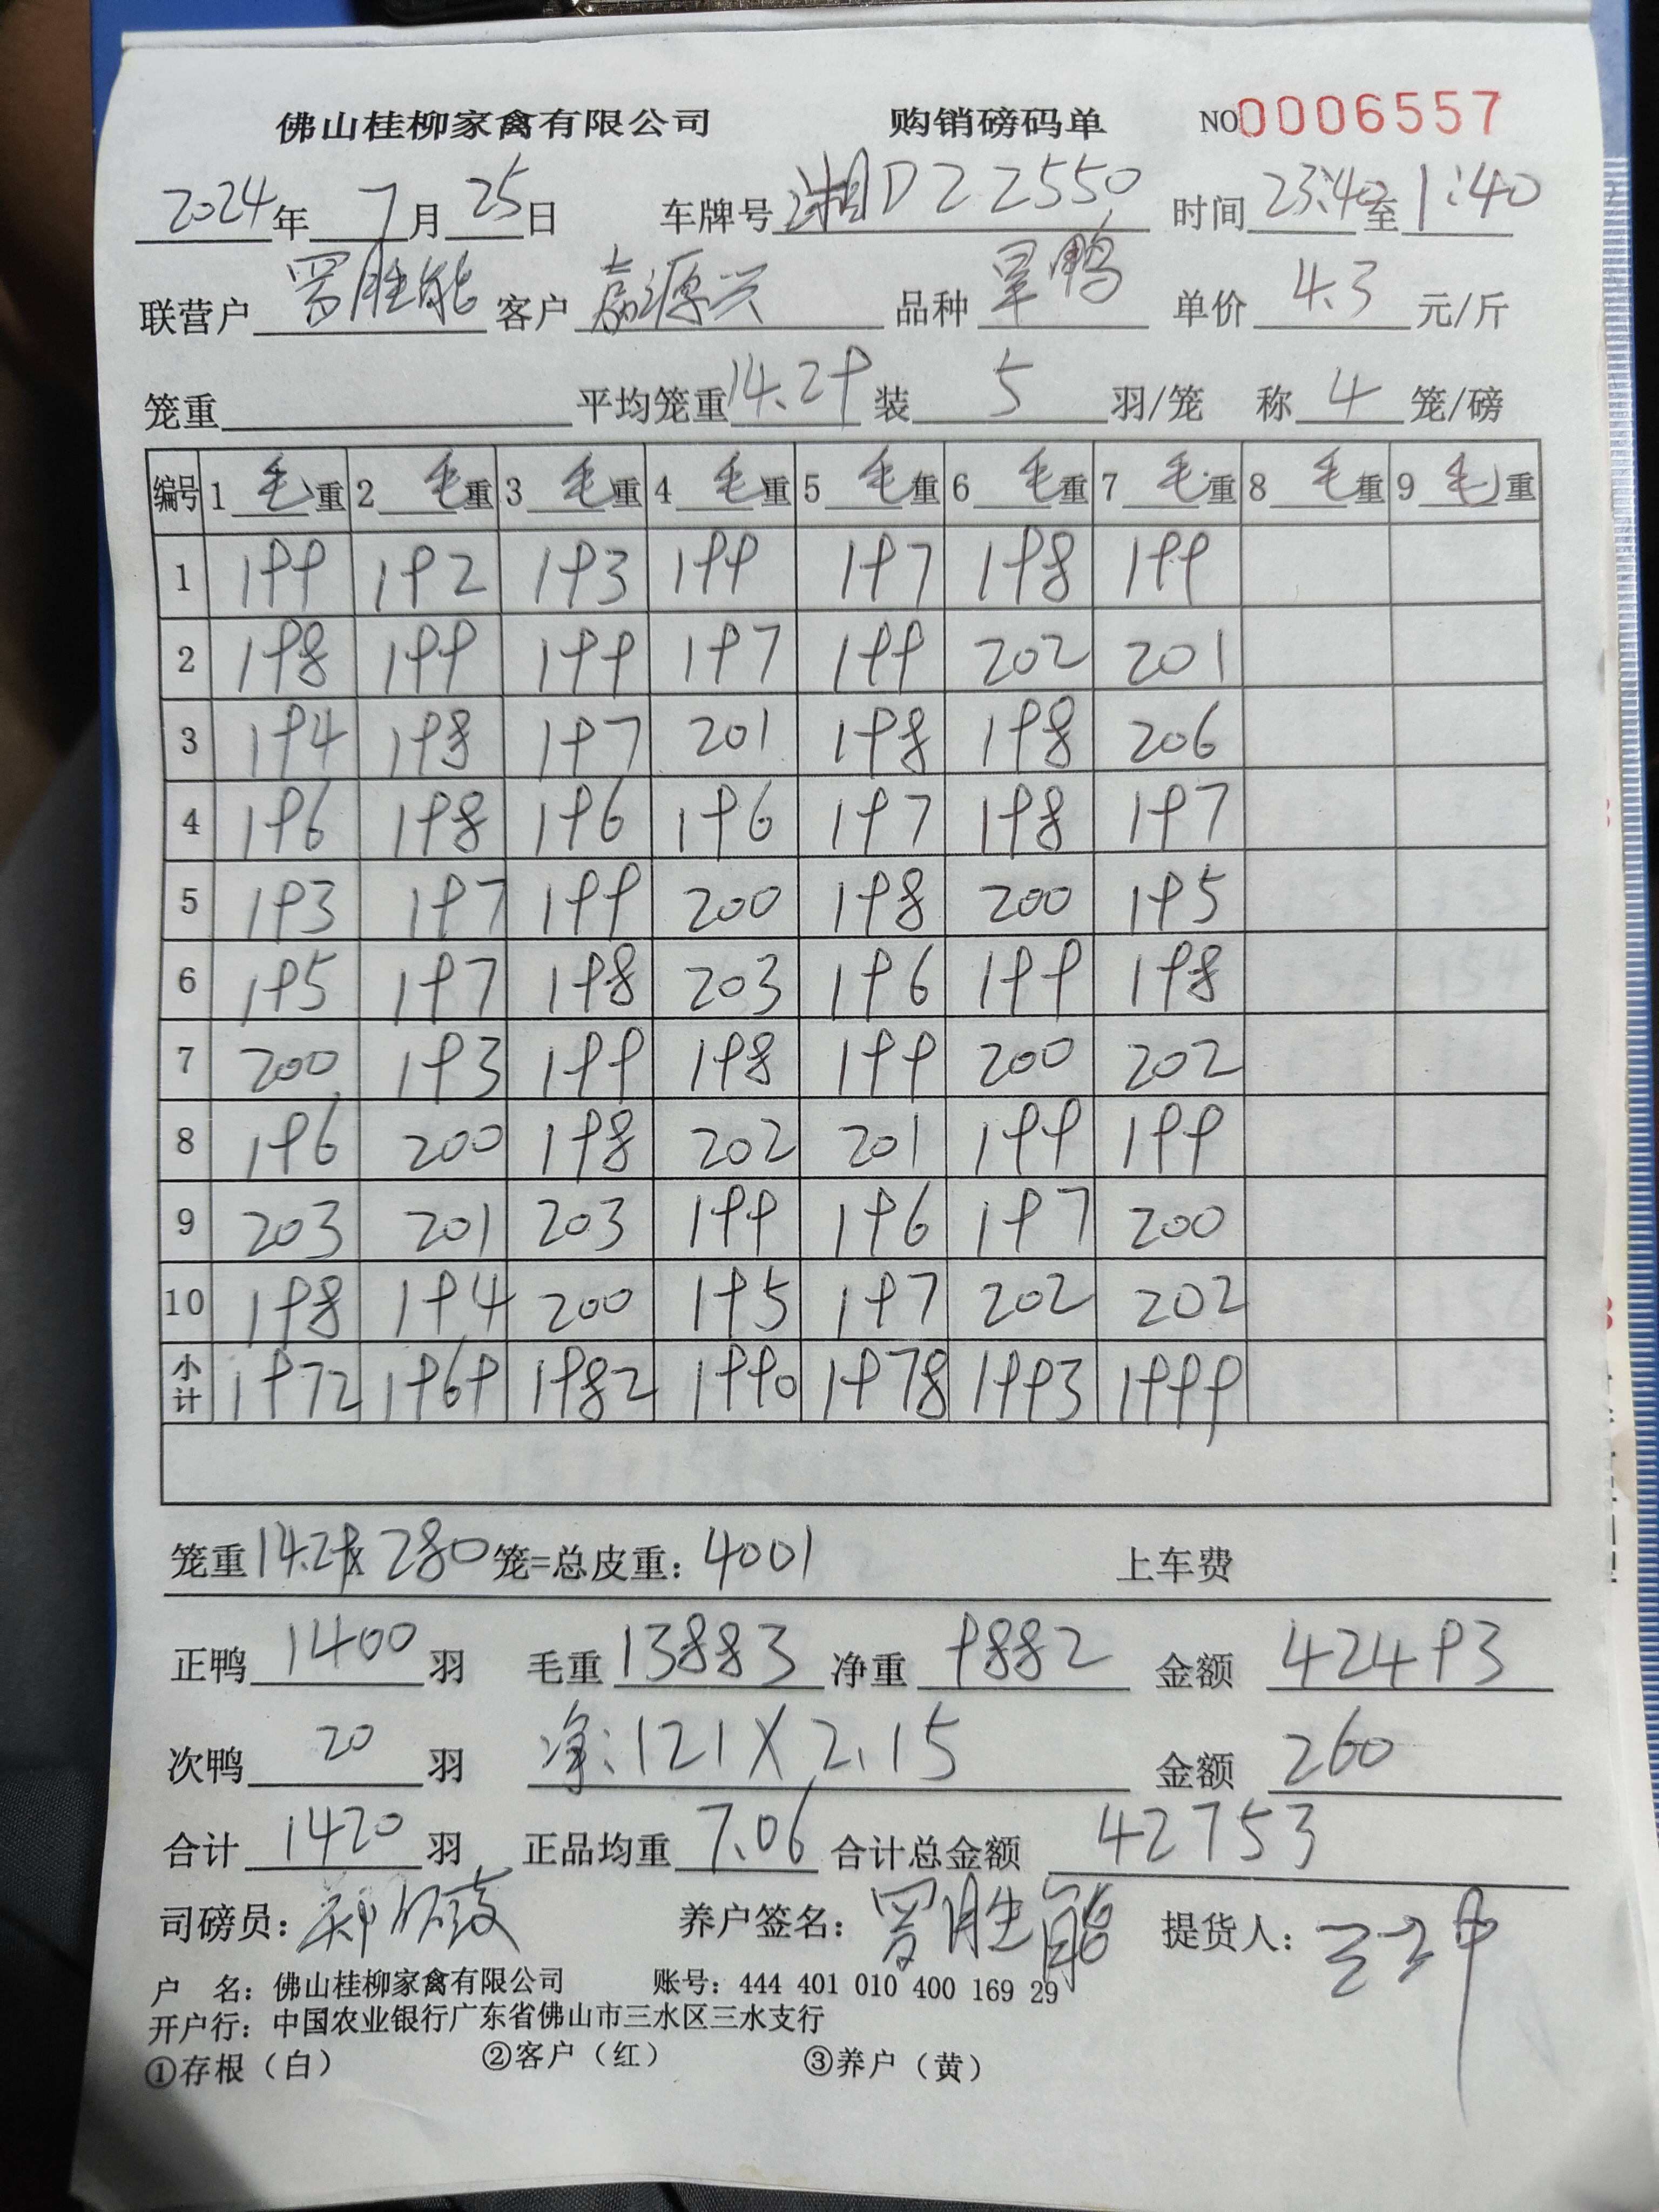 佛山桂柳家禽有限公司 购销磅码单 NO0006557
2024年 7月 25日 车牌号 湘DZ2550 时间 23:40至 1:40
联营户 罗胜能 客户 嘉源兴 品种 旱鸭 单价 4.3 元/斤
笼重 平均笼重 14.29 装 5 羽/笼 称 4 笼/磅
编号 1 毛重 2 毛重 3 毛重 4 毛重 5 毛重 6 毛重 7 毛重 8 毛重 9 毛重
1 199 192 193 199 197 198 199
2 198 199 199 197 199 202 201
3 194 198 197 201 198 198 206
4 196 198 196 196 197 198 197
5 193 197 199 200 198 200 195
6 195 197 198 203 196 199 198
7 200 193 199 198 199 200 202
8 196 200 198 202 201 199 199
9 203 201 203 199 196 197 200
10 198 194 200 195 197 202 202
小计 1972 1969 1982 1990 1978 1993 1999
笼重 14.29 x 280 笼=总皮重: 4001 上车费
正鸭 1400 羽 毛重 13883 净重 9882 金额 42493
次鸭 20 羽 净:121X2.15 金额 260
合计 1420 羽 正品均重 7.06 合计总金额 42753
司磅员: 养户签名: 罗胜能 提货人:
户 名: 佛山桂柳家禽有限公司 账号: 444 401 010 400 169 29
开户行: 中国农业银行广东省佛山市三水区三水支行
①存根（白） ②客户（红） ③养户（黄）